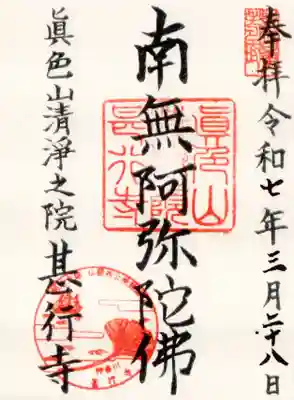 奉拝令和七年三月二十八日
南無阿弥陀佛
眞色山清淨之院甚行寺
眞色山
甚行寺
神奈川